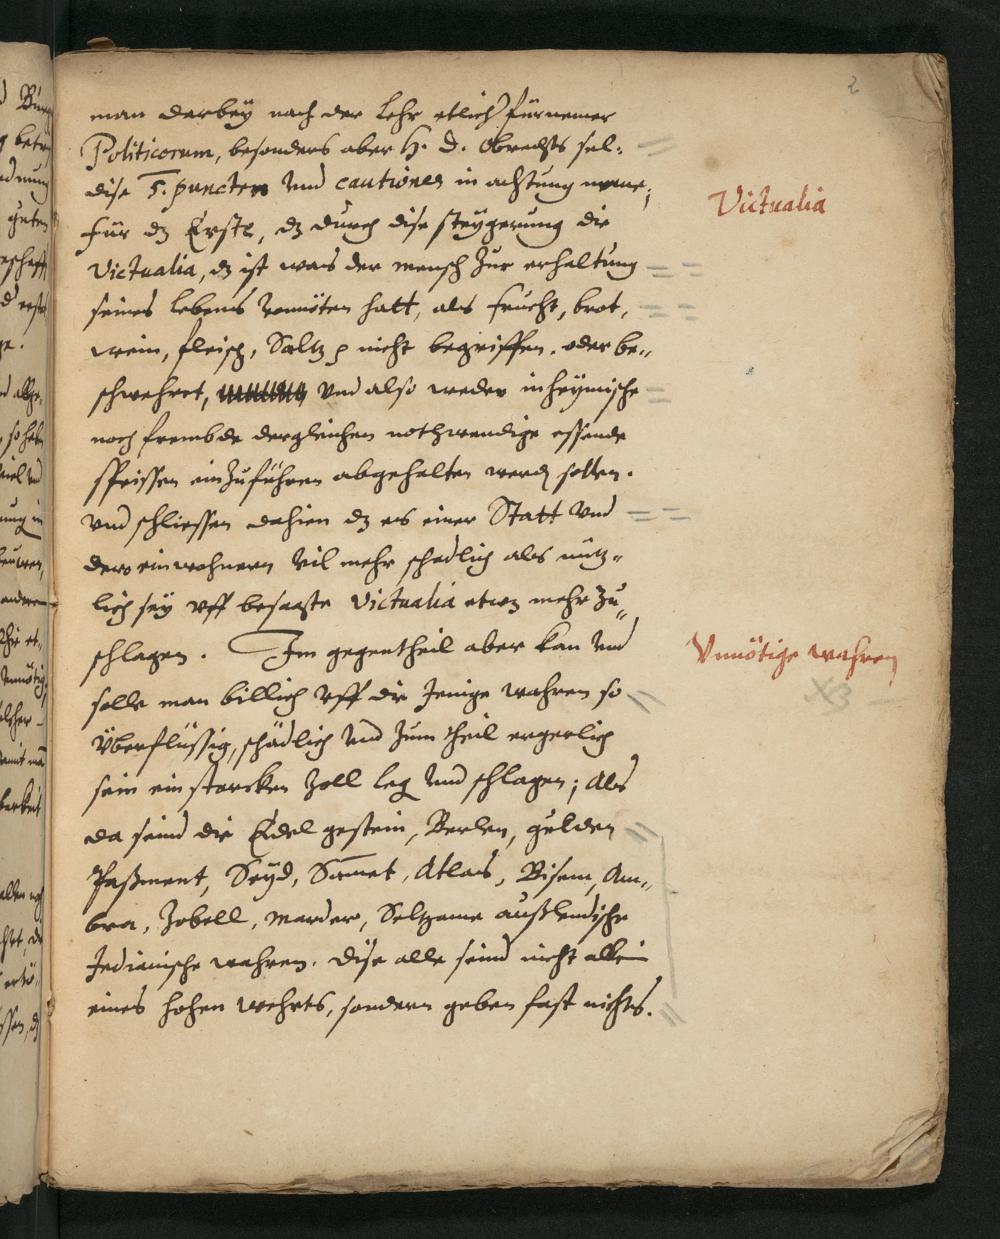 2
man darbeÿ nach der Lehr etlich fürnemer
Politicorum, besonders aber H. D. Obrechts sel:
dise 5. puncten vnd cautiones in achtung neme;
Für dz Erste, dz durch dise steÿgerung die
Victualia
Victualia, dz ist was der mensch zur erhaltung
seines lebens vonnöten hatt, als frucht, brot,
wein, fleisch, Saltz nicht begriffen. oder be„
schwehret, vnd also weder inheÿmische
noch frembde dergleichen nothwendige essende
speissen einzuführen abgehalten werden sollen.
vnd schliessen dahien dz es einer Statt vnd
dero einwohnern vil mehr schedlich als nutz„
lich seÿ vff besagte Victualia etwz mehr zu„
schlagen. Im gegentheil aber kan vnd
Vnnötige wahren
solle man billich vff die Jenige wahren so
Überflüssig, schädlich vnd zum theil ergerlich
sein ein starcken Zoll leg vnd schlagen; Als
da seind die Edel gestein, Berlen, gulden
Paßment, Seÿd, Samet, Atlas, Bisem, Am„
bra, Zobell, Marder, Seltzame außlendische
Indianische wahren. Dise alle seind nicht allein
eines hohen wehrts, sondern geben fast nichts.